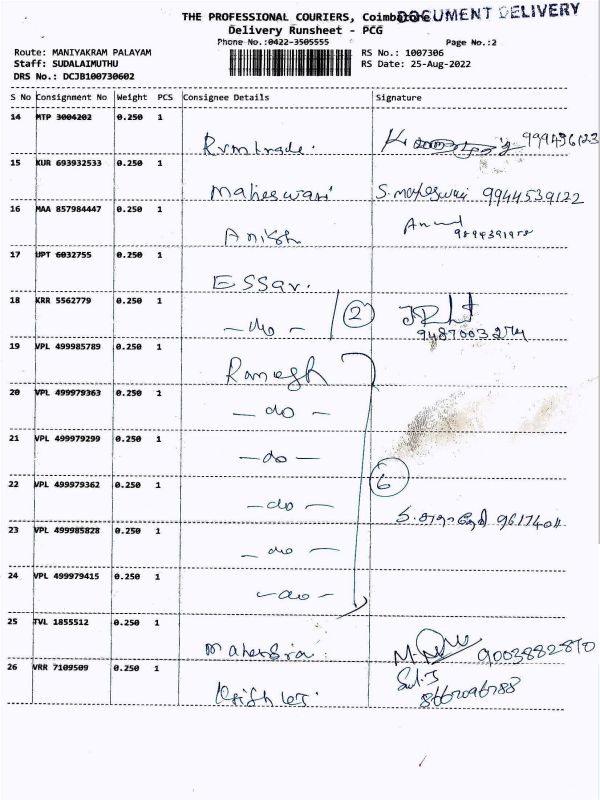 THE PROFESSIONAL COURIERS, Coimbatore
DOCUMENT DELIVERY
Delivery Runsheet - PCG
Phone No.:0422-3505555 Page No.:2
Route: MANIYAKRAM PALAYAM RS No.: 1007306
Staff: SUDALAIMUTHU RS Date: 25-Aug-2022
DRS No.: DCJB100730602
S No Consignment No Weight PCS Consignee Details Signature
14 MTP 3004202 0.250 1
15 KUR 693932533 0.250 1
Maheswari S. maheswari 9944539122
16 MAA 857984447 0.250 1
Anish
17 UPT 6032755 0.250 1
ESSar.
18 KRR 5562779 0.250 1
-do- 2
19 VPL 499985789 0.250 1
Ramesh
20 VPL 499979363 0.250 1
-do-
21 VPL 499979299 0.250 1
-do-
22 VPL 499979362 0.250 1 6
-do-
23 VPL 499985828 0.250 1
-do-
24 VPL 499979415 0.250 1
-do-
25 TVL 1855512 0.250 1
9003882870
26 VRR 7109509 0.250 1